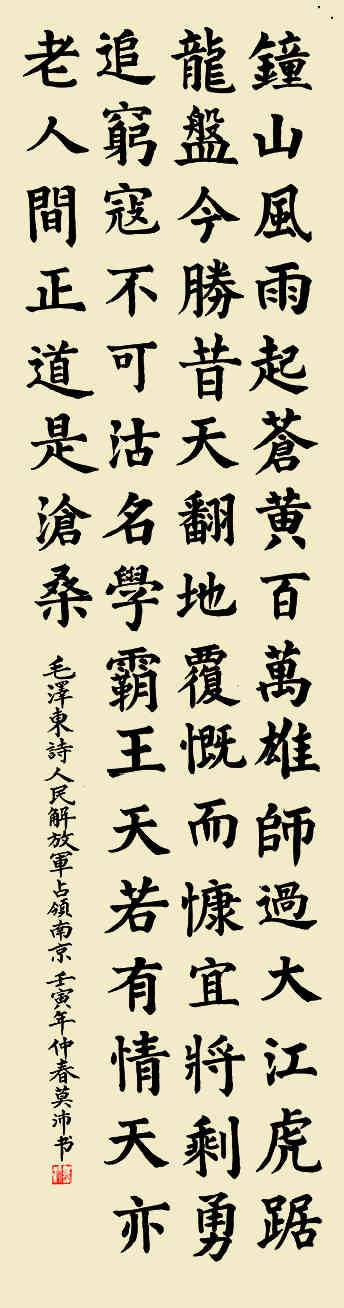 鐘山風雨起蒼黄百萬雄師過大江虎踞
龍盤今勝昔天翻地覆慨而慷宜將剩勇
追窮寇不可沽名學霸王天若有情天亦
老人間正道是滄桑
毛澤東詩人民解放軍占領南京 壬寅年仲春莫沛书